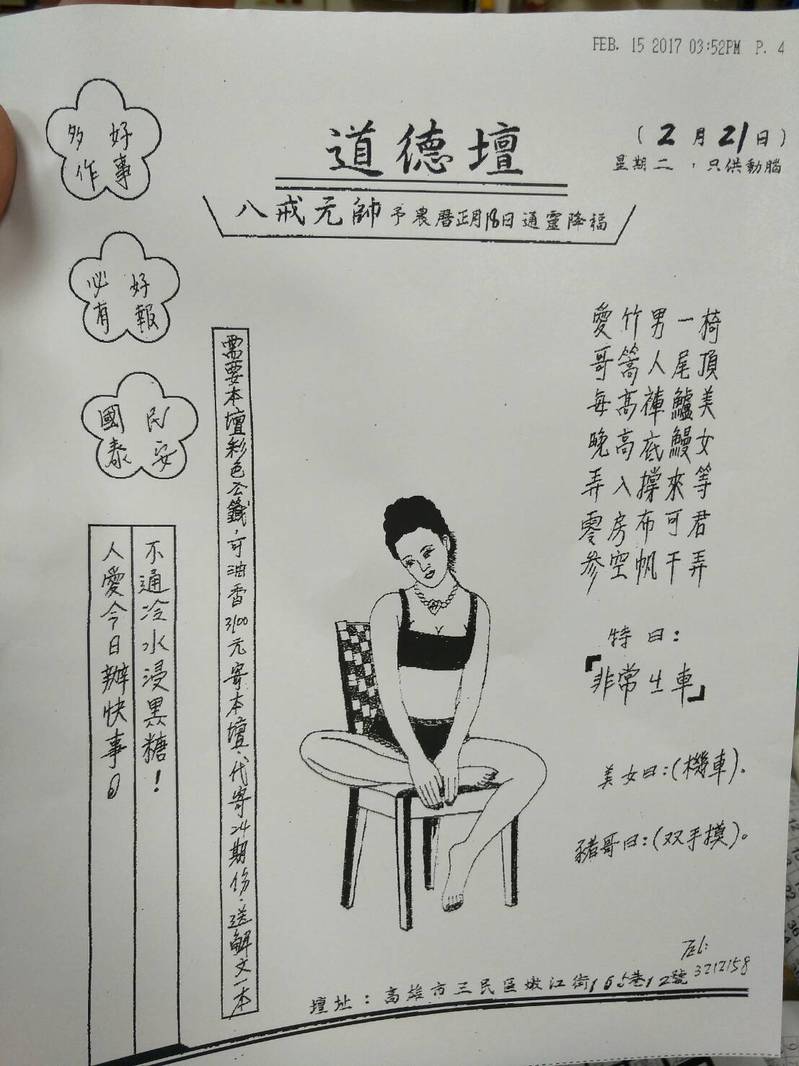 FEB. 15 2017 03:52PM P. 4
好事
多作
道德壇
(2月21日)
星期二，只供動腦
八戒元帥予農曆正月18日通靈降福
好報
必有
民安
國泰
椅頂美女等君弄
一尾鱸鰻來可干
男人褲底撐布帆
竹篙高高入房空
愛哥每晚弄零參
特曰：
「非常生車」
美女曰：(機車)。
豬哥曰：(双手摸)。
需要本壇彩色公籤，可油香3100元寄本壇，代寄24期份，送解文一本
不通冷水浸黑糖！
人愛今日辦快事。
Tel:
3212158
壇址：高雄市三民區嫩江街165巷12號